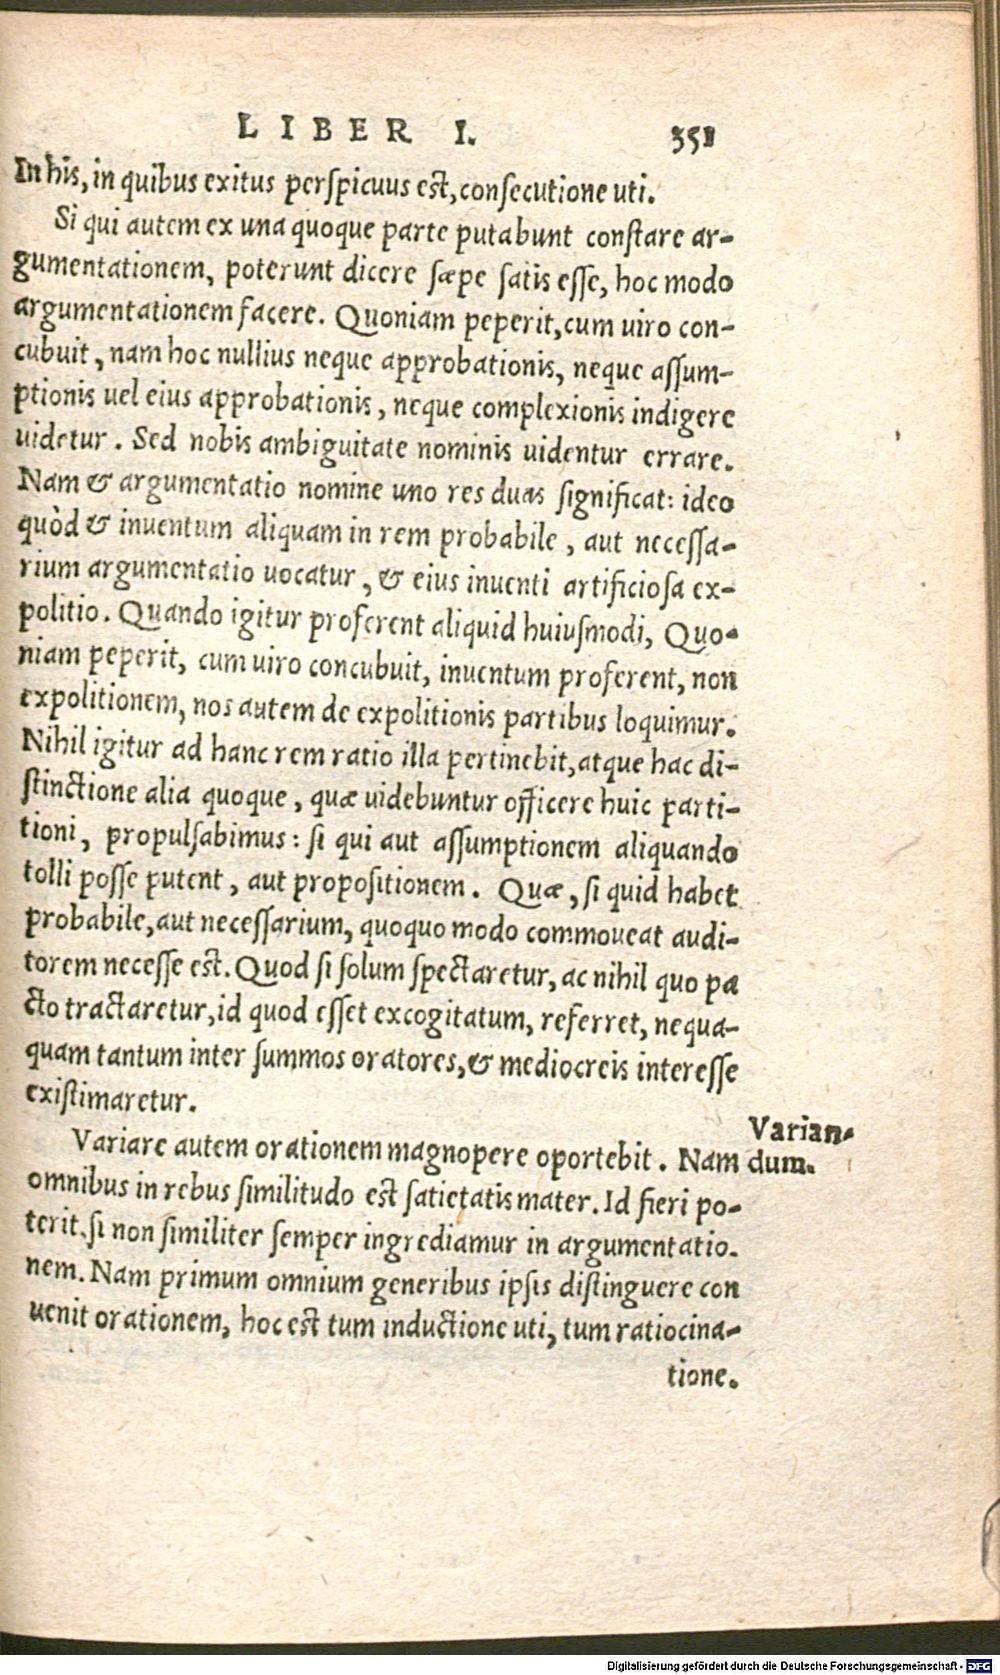 LIBER I. 351
In his, in quibus exitus perspicuus est, consecutione uti.
Si qui autem ex una quoque parte putabunt constare ar-
gumentationem, poterunt dicere sæpe satis esse, hoc modo
argumentationem facere. Quoniam peperit, cum uiro con-
cubuit, nam hoc nullius neque approbationis, neque assum-
ptionis uel eius approbationis, neque complexionis indigere
uidetur. Sed nobis ambiguitate nominis uidentur errare.
Nam & argumentatio nomine uno res duas significat: ideo
quòd & inuentum aliquam in rem probabile, aut necessa-
rium argumentatio uocatur, & eius inuenti artificiosa ex-
politio. Quando igitur proferent aliquid huiusmodi, Quo-
niam peperit, cum uiro concubuit, inuentum proferent, non
expolitionem, nos autem de expolitionis partibus loquimur.
Nihil igitur ad hanc rem ratio illa pertinebit, atque hac di-
stinctione alia quoque, quæ uidebuntur officere huic parti-
tioni, propulsabimus: si qui aut assumptionem aliquando
tolli posse putent, aut propositionem. Quæ, si quid habet
probabile, aut necessarium, quoquo modo commoueat audi-
torem necesse est. Quod si solum spectaretur, ac nihil quo pa
cto tractaretur, id quod esset excogitatum, referret, nequa-
quam tantum inter summos oratores, & mediocreis interesse
existimaretur.
Variare autem orationem magnopere oportebit. Nam
Varian-
dum.
omnibus in rebus similitudo est satietatis mater. Id fieri po-
terit, si non similiter semper ingrediamur in argumentatio-
nem. Nam primum omnium generibus ipsis distinguere con
uenit orationem, hoc est tum inductione uti, tum ratiocina-
tione.
Digitalisierung gefördert durch die Deutsche Forschungsgemeinschaft - DFG